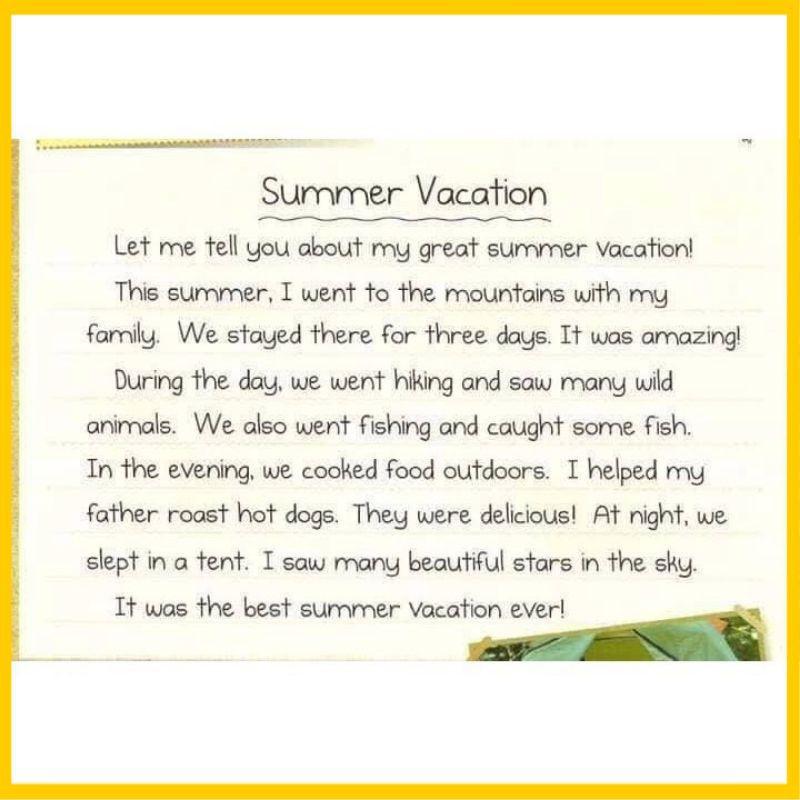 Summer Vacation
Let me tell you about my great summer vacation!
This summer, I went to the mountains with my
family. We stayed there for three days. It was amazing!
During the day, we went hiking and saw many wild
animals. We also went fishing and caught some fish.
In the evening, we cooked food outdoors. I helped my
father roast hot dogs. They were delicious! At night, we
slept in a tent. I saw many beautiful stars in the sky.
It was the best summer vacation ever!